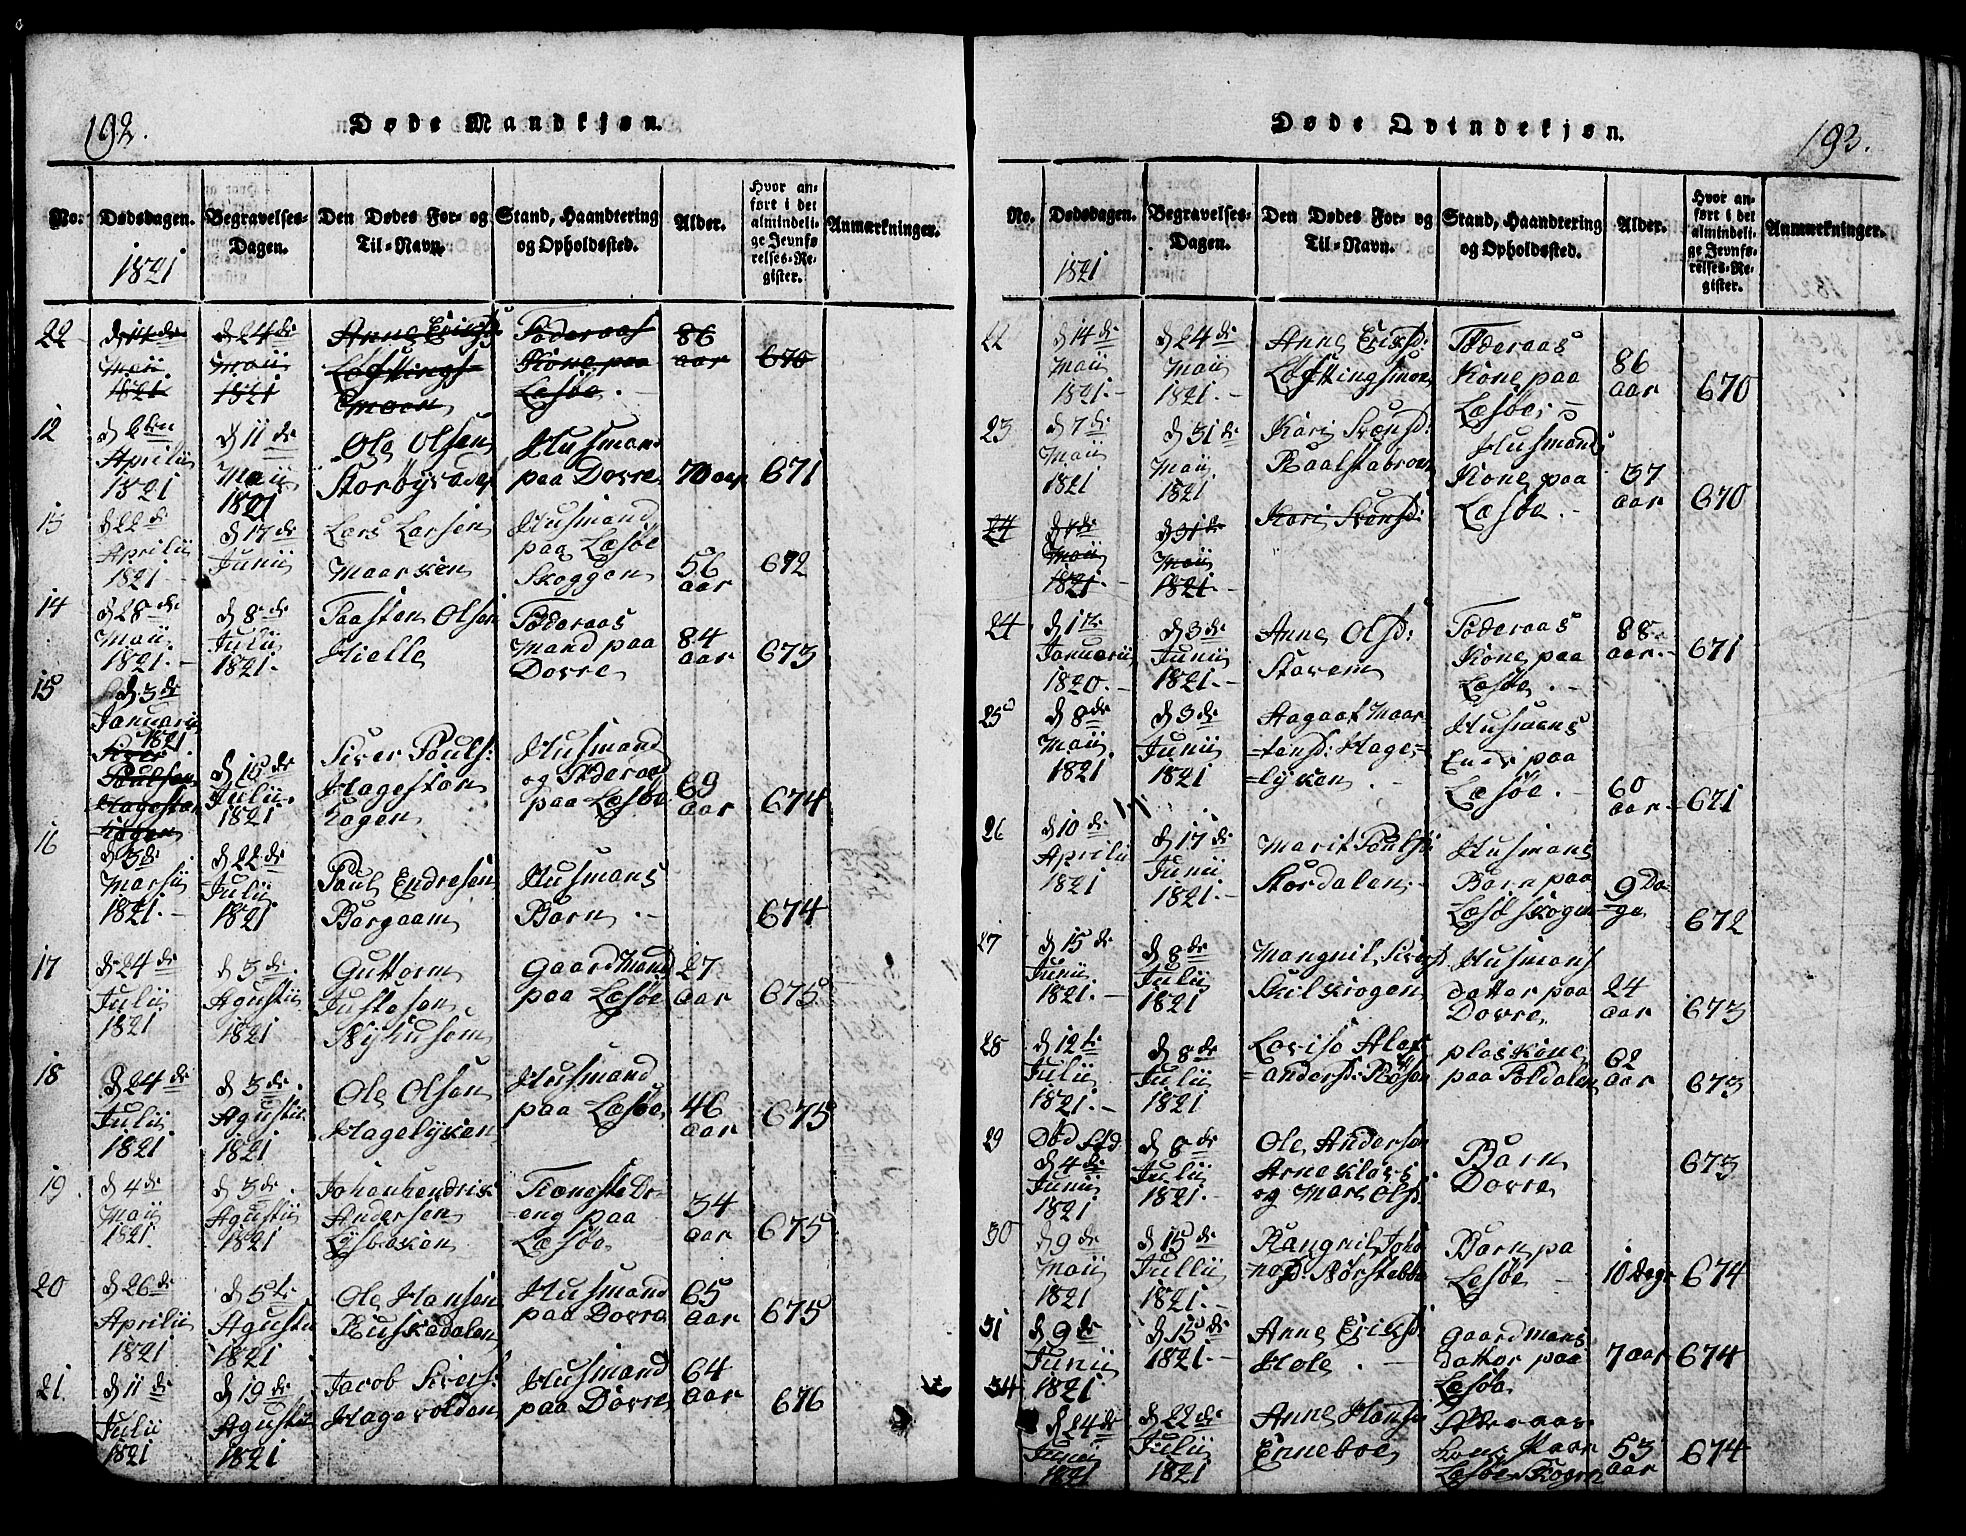 192.
Døde Mandkjøn.
No.
Dødsdagen.
1821
Begravelses-
Dagen.
Den Dødes For- og
Til-Navn.
Stand, Haandtering
og Opholdssted.
Alder.
Hvor an-
ført i det
almindeli-
ge Jevnfø
relses-Re-
gister.
Anmærkninger.
22
d 14 de
Maii
1821
d 24 de
Maii
1821
Anne Eriksd:
Løftings-
Emoen
Føderaas
Kone paa
Læsöe.
86
aar
670
12
d 6 ten
Aprilii
1821
d 11 de
Maii
1821
Ole Olsen
Husmand
paa Dovre
70 aar
671
13
d 22 di
Aprilii
1821.-
d 17 de
Junii
Lars Larsen
Maarsken
Husmand
paa Læsöe
Skoggen
56
aar
672
14
d 28 de
Maii
1821.-
d 8 de
Julii
1821.
Taasten Olsen
Hielle
Føderaas
Mand paa
Dovre
84
aar
673
15
d 3 de
Januarii
1821.
Siver
Poulsen
Hagestar
Kagen
d 15 de
Julii
1821
Siver Pouls:
Hagestøn
Kagen
Husmand
og Föderaad
paa Læsöe
69
aar
674
16
d 3 de
Marsii
1821.-
d 22 de
Julii
1821
Paul Endresen
Borgaam
Husmans
Barn.-
674
17
d 24 de
Julii
1821
d 3 de
Agustii
1821
Guttorm
Justesen
Nyhusom
Gaardmand
paa Læsöe
27
aar
675
18
d 24 de
Julii
1821
d 3 de
Agustii
1821
Ole Olsen
Hagelyken
Husmand
paa Læsöe
46
aar
675
19.
d 4 de
Maii
1821.
d 3 de
Agustii
1821
Johanhendrik
Andersen
Tieneste Dr-
eng paa
Læsöe
34
aar
675
20
d 26 de
Aprilii
1821
d 5 te
Agustii
1821
Ole Hansen
Ruskedalen
Husmand
paa Dovre
65
aar
675
21.
d 11 de
Julii
1821
d 19 de
Agustii
1821
Jacob Sivers:
Hagevolden
Husmand
paa Dovre
64
aar
676
193.
Døde Qvindekjøn.
No.
Dødsdagen.
1821
Begravelses-
Dagen.
Den Dødes For- og
Til-Navn.
Stand, Haandtering
og Opholdssted.
Alder.
Hvor an-
ført i det
almindeli-
ge Jevnfø-
relses-Re-
gister.
Anmærkninger.
22
d 14 de
Maii
1821.-
d 24 de
Maii
1821.-
Anne Eriksd:
Løftingsmoen
Føderaas
Kone paa
Læsöe.-
86
aar
670
23
d 7 de
Maii
1821
d 31 de
Maii
1821
Kari Svensd:
Raalstabroen
Husmands
Kone paa
Læsöe.-
37
aar
670
24
d 7 de
Maii
1821.-
d 31 te
Maii
1821.-
Kari Svensd:
24
d 1 te
Januarii
1820.-
d 3 de
Junii
1821.-
Anne Olsd:
Storem
Føderaas
Kone paa
Læsöe.-
88
aar.-
671
25
d 8 de
Maii
1821
d 3 de
Junii
1821
Aagaat Maar-
=tensd: Hage=
=lyken.-
Husmans
Enke paa
Læsöe.-
60
aar
671
26
d 10 de
Aprilii
1821
d 17 de
Junii
1821.-
Marit Poulsd
Stordalen,-
Husmans
Barn paa
Læsö Skogen
9 Da-
ge
672
27
d 15 de
Junii
1821.-
d 8 de
Julii
1821
Mangnil Siversd
Skilskrogen
Husmans
datter paa
Dovre
24
aar
673
28
d 12 te
Julii
1821.-
d 8 de
Julii
1821
Lovise Alex
=andersd: Rösen
plaskone
paa Foldalen
62
aar
673
29
Død fød
d 4 de
Junii
1821
d 8 de
Julii
1821.-
Ole Anderson
og Mari Olsd
Barn
Dovre
673
30
d 9 de
Maii
1821
d 15 de
Julii
1821.-
Rangnil Joha
Barn pa
Læsöe
10 Dage
674
31
d 9 de
Junii
1821
d 15 de
1821.-
Anne Eriksd
Hole.-
Gaardmans
datter paa
Læsöe
7 aar
674
34
d 24 de
Junii
1821
d 22 de
Julii
1821
Anne Hansd
Enneboe
Føderaas
Kone Paa
Læsöe Skogen
53
aar
674